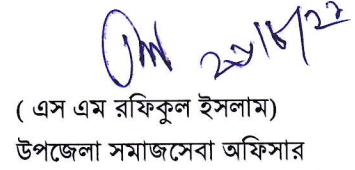 ( এস এম রফিকুল ইসলাম)
উপজেলা সমাজসেবা অফিসার